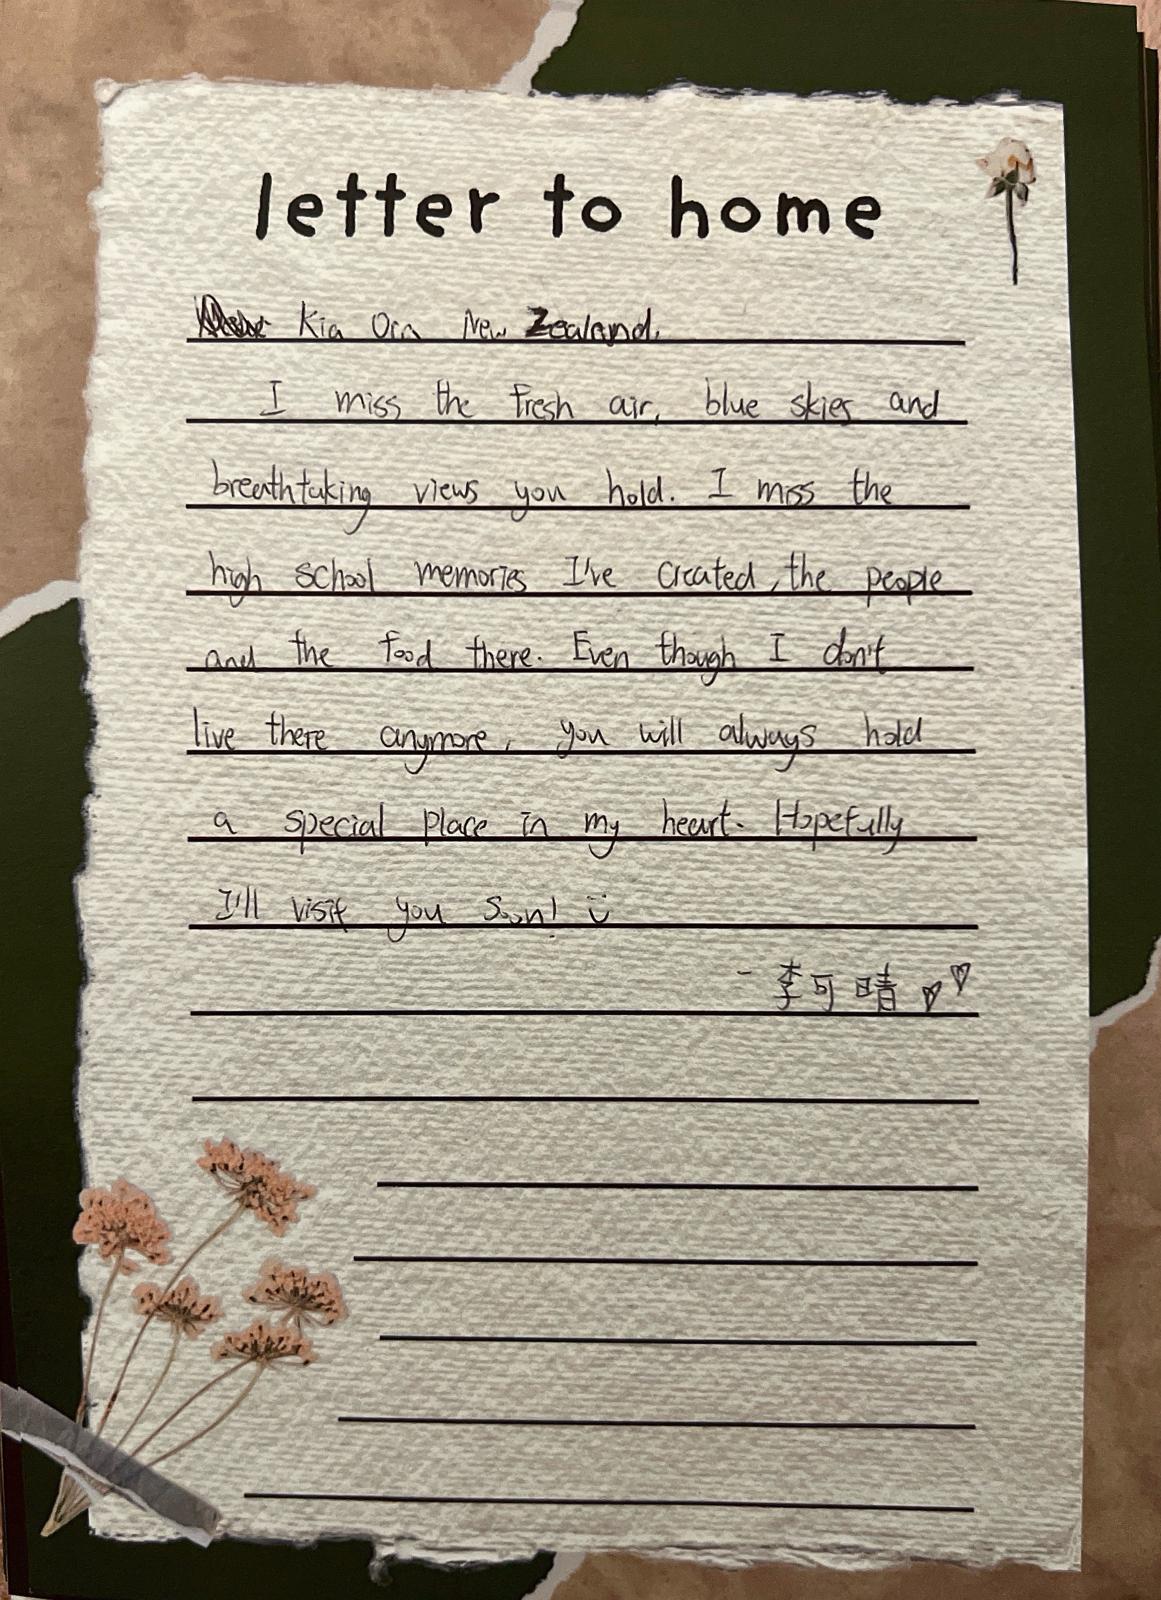 letter to home
Kia Ora New Zealand.
I miss the fresh air, blue skies and
breathtaking views you hold. I miss the
high school memories I've created, the people
and the food there. Even though I don't
live there anymore, you will always hold
a special place in my heart. Hopefully
I'll visit you soon! ü
- 李可晴 ♡♡